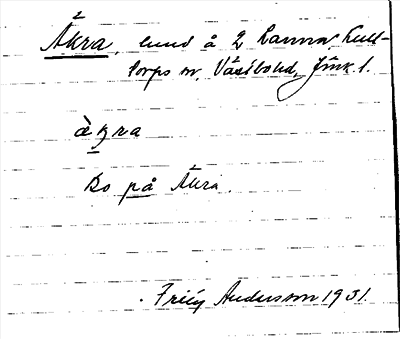 Åkra, lund å 2 Lanna, Kull-
torps sn, Västbo hd, Jönk. l.
àkra
Bo på Åkra.
Friey Andersson 1931.